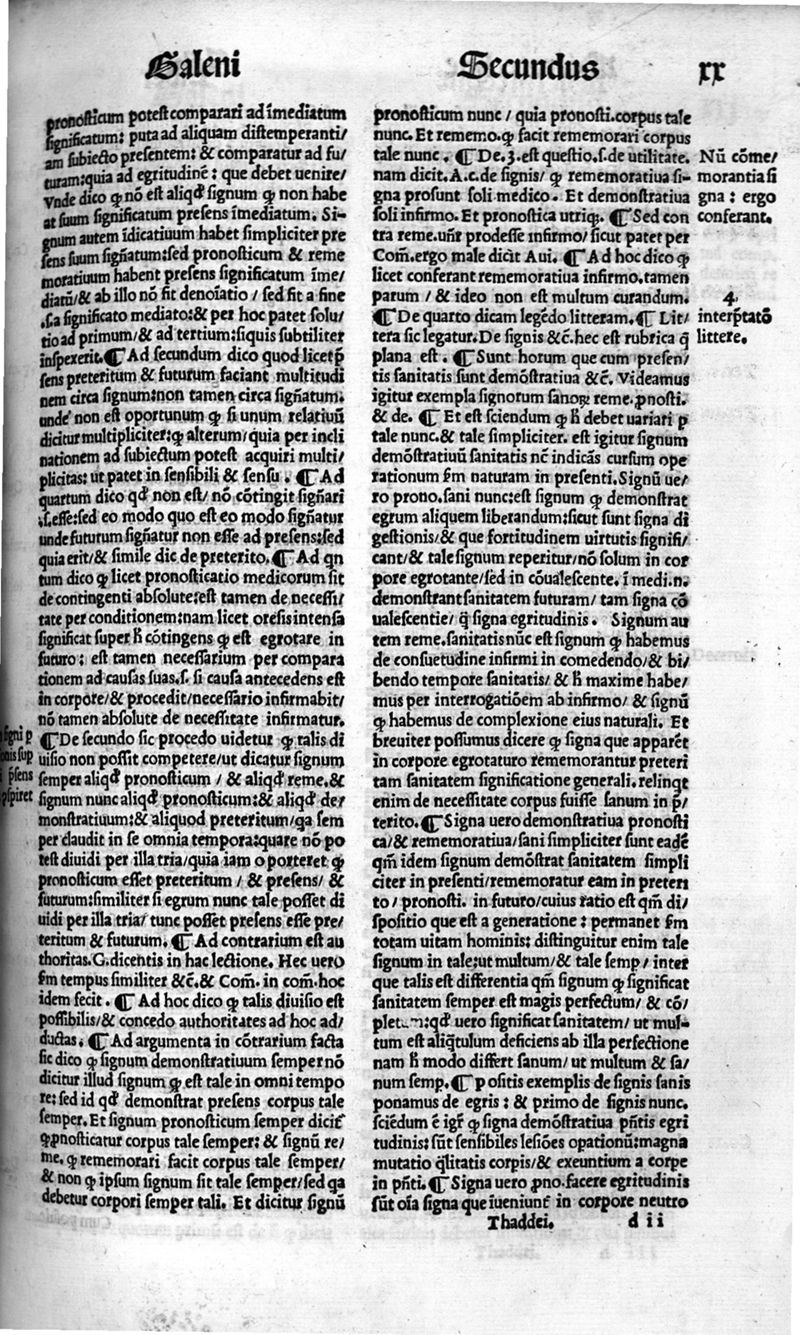 Galeni Secundus xx
pronosticum potest comparari ad īmediatum
significatum: puta ad aliquam distemperanti/
am subiecto presentem: & comparatur ad fu/
turam: quia ad egritudinē: que debet uenire/
Vnde dico ꝙ nō est aliqđ signum ꝙ non habe
at suum significatum presens īmediatum. Si-
gnum autem īdicatiuum habet simpliciter pre
sens suum sigñatum: sed pronosticum & reme
moratiuum habent presens significatum īme/
diatū/ & ab illo nō fit denoīatio / sed fit a fine
.s. a significato mediato: & per hoc patet solu/
tio ad primum/ & ad tertium: siquis subtiliter
inspexerit. ¶ Ad secundum dico quod licet p̄
sens preteritum & futurum faciant multitudi
nem circa signum: non tamen circa sigñatum.
unde non est oportunum ꝙ si unum relatiuū
dicitur multipliciter: ꝙ alterum/ quia per incli
nationem ad subiectum potest acquiri multi/
plicitas: ut patet in sensibili & sensu . ¶ Ad
quartum dico qđ non est/ nō cōtingit sigñari
.s. esse: sed eo modo quo est eo modo sigñatur
unde futurum sigñatur non esse ad presens: sed
quia erit/ & simile dic de preterito. ¶ Ad qn
tum dico ꝙ licet pronosticatio medicorum sit
de contingenti absolute: est tamen de necessi/
tate per conditionem: nam licet orexis intensa
significat super ħ cōtingens ꝙ est egrotare in
futuro: est tamen necessarium per compara
tionem ad causas suas. s. si causa antecedens est
in corpore/ & procedit/ necessario infirmabit/
nō tamen absolute de necessitate infirmatur.
¶ De secundo sic procedo uidetur ꝙ talis di
uisio non possit competere/ ut dicatur signum
semper aliqđ pronosticum / & aliqđ reme. &
signum nunc aliqđ pronosticum: & aliqđ de/
monstratiuum: & aliquod preteritum/ qa sem
per claudit in se omnia tempora: quare nō po
test diuidi per illa tria/ quia iam oporteret ꝙ
pronosticum esset preteritum / & presens/ &
futurum: similiter si egrum nunc tale posset di
uidi per illa tria/ tunc posset presens esse pre/
teritum & futurum. ¶ Ad contrarium est au
thoritas. G. dicentis in hac lectione. Hec uero
fm tempus similiter &c̄. & Com̄. in com̄. hoc
idem fecit . ¶ Ad hoc dico ꝙ talis diuisio est
possibilis/ & concedo authoritates ad hoc ad/
ductas. ¶ Ad argumenta in cōtrarium facta
sic dico ꝙ signum demonstratiuum semper nō
dicitur illud signum ꝙ est tale in omni tempo
re: sed id qđ demonstrat presens corpus tale
semper. Et signum pronosticum semper dicit̄
ꝙ ꝓnosticatur corpus tale semper: & signū re/
me. ꝙ rememorari facit corpus tale semper/
& non ꝙ ipsum signum sit tale semper/ sed qa
debetur corpori semper tali. Et dicitur signū
signi p
sup
p̄sens
pronosticum nunc / quia pronosti. corpus tale
nunc. Et rememo. ꝙ facit rememorari corpus
tale nunc . ¶ De. 3. est questio. s. de utilitate.
nam dicit. A. c. de signis/ ꝙ rememoratiua si-
gna prosunt soli medico. Et demonstratiua
soli infirmo. Et pronostica utriqꝫ. ¶ Sed con
tra reme. uñr prodesse infirmo/ sicut patet per
Com̄. ergo male dicit Aui. ¶ Ad hoc dico ꝙ
licet conferant rememoratiua infirmo. tamen
parum / & ideo non est multum curandum.
¶ De quarto dicam legēdo litteram. ¶ Lit/
tera sic legatur. De signis &c̄. hec est rubrica q̄
plana est . ¶ Sunt horum que cum presen/
tis sanitatis sunt demōstratiua &c̄. Videamus
igitur exempla signorum sanoꝝ reme. ꝓnosti.
& de. ¶ Et est sciendum ꝙ ħ debet uariari p
tale nunc. & tale simpliciter. est igitur signum
demōstratiuū sanitatis nē indicās cursum ope
rationum fm naturam in presenti. Signū ue/
ro prono. sani nunc: est signum ꝙ demonstrat
egrum aliquem liberandum: sicut sunt signa di
gestionis/ & que fortitudinem uirtutis signifi/
cant/ & tale signum reperitur/ nō solum in cor
pore egrotante/ sed in cōualescente. ī medi. n.
demonstrant sanitatem futuram/ tam signa cō
ualescentie/ q̄ signa egritudinis . Signum au
tem reme. sanitatis nūc est signum ꝙ habemus
de consuetudine infirmi in comedendo/ & bi/
bendo tempore sanitatis/ & ħ maxime habe/
mus per interrogatiōem ab infirmo/ & signū
ꝙ habemus de complexione eius naturali. Et
breuiter possumus dicere ꝙ signa que apparēt
in corpore egrotaturo rememorantur preteri
tam sanitatem significatione generali. relinqt
enim de necessitate corpus fuisse sanum in p̄/
terito. ¶ Signa uero demonstratiua pronosti
ca/ & rememoratiua/ sani simpliciter sunt eadē
qm̄ idem signum demōstrat sanitatem simpli
citer in presenti/ rememoratur eam in preteri
to / pronosti. in futuro/ cuius ratio est qm̄ di/
spositio que est a generatione : permanet fm
totam uitam hominis: distinguitur enim tale
signum in tale: ut multum/ & tale semp/ inter
que talis est differentia qm̄ signum ꝙ significat
sanitatem semper est magis perfectum/ & cō/
pletum: qđ uero significat sanitatem/ ut mul-
tum est aliq̄tulum deficiens ab illa perfectione
nam ħ modo differt sanum/ ut multum & sa/
num semp. ¶ Positis exemplis de signis sanis
ponamus de egris : & primo de signis nunc.
sciēdum ē igr̄ ꝙ signa demōstratiua pn̄tis egri
tudinis: sūt sensibiles lesiōes opationū: magna
mutatio q̄litatis corpis/ & exeuntium a corpe
in pn̄ti. ¶ Signa uero ꝓno. facere egritudinis
sūt oīa signa que īueniunt̄ in corpore neutro
Nū cōme/
morantia si
gna : ergo
conferant.
4.
interp̄tatō
littere.
Thaddei. d ii